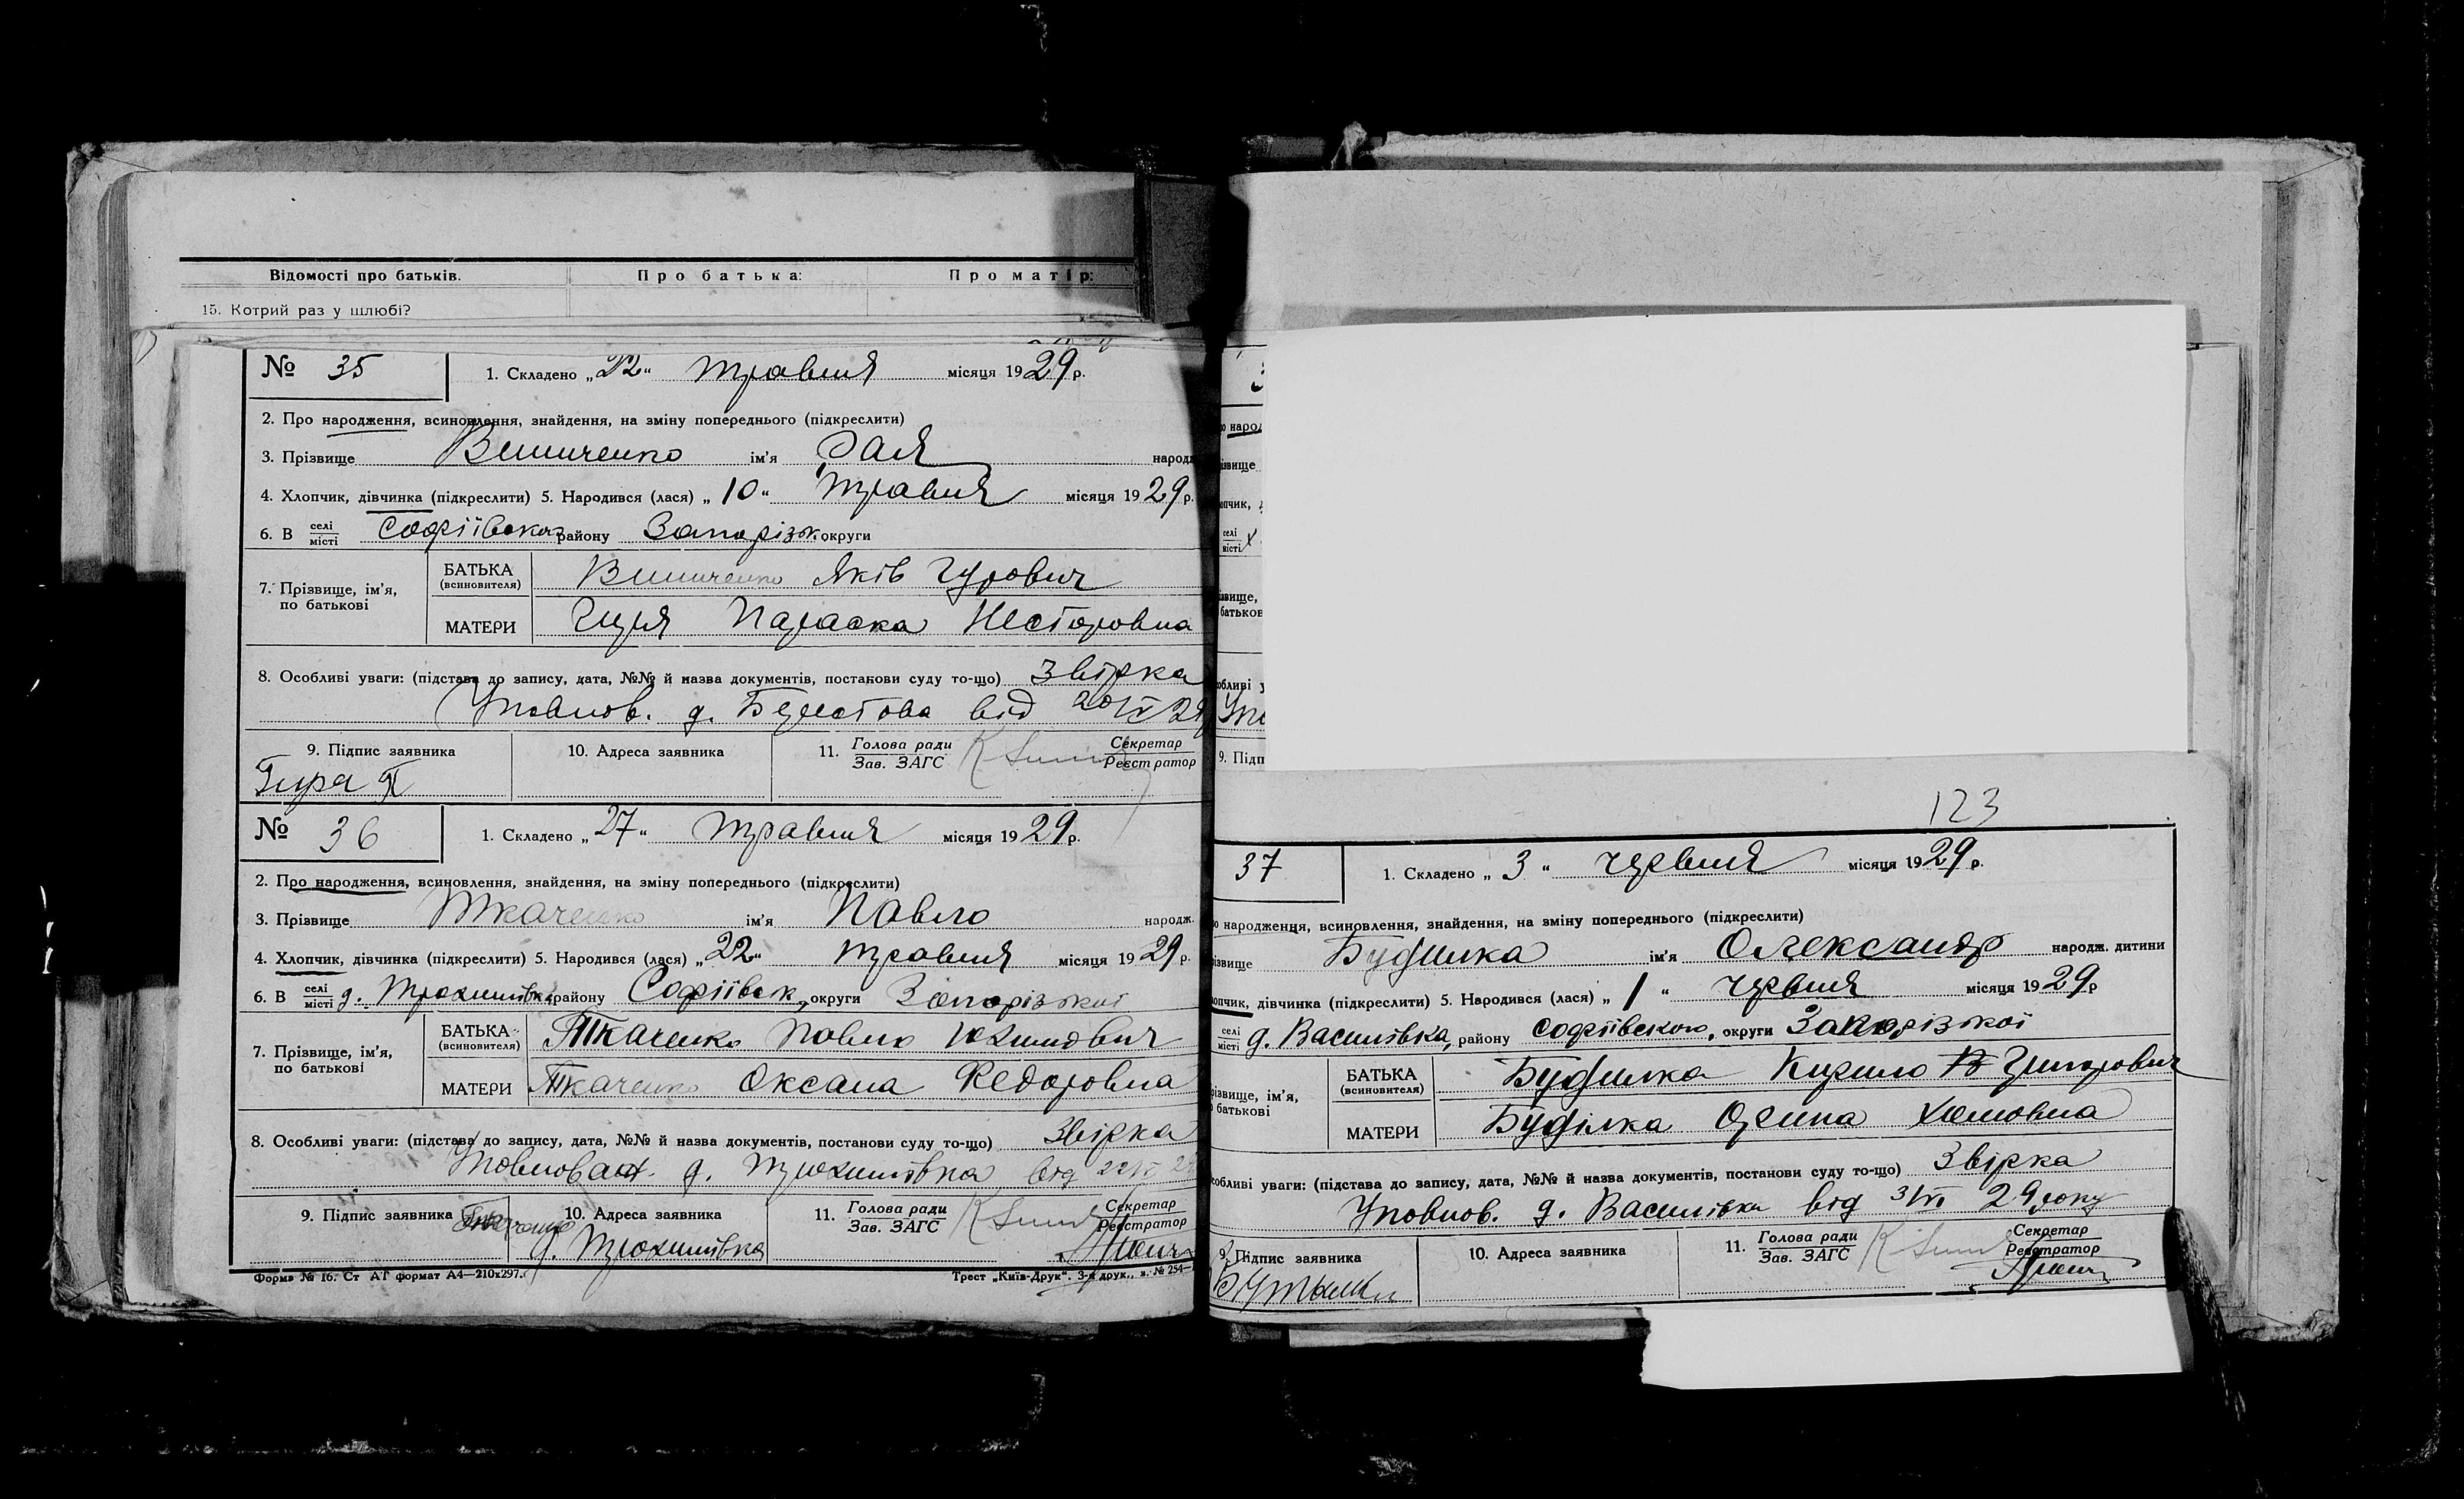 Відомості про батьків. Про батька: Про матір:
15. Котрий раз у шлюбі?
№ 35 1. Складено „22“ травня місяця 1929 р.
2. Про народження, всиновлення, знайдення, на зміну попереднього (підкреслити)
3. Прізвище Винниченко ім'я Рая народж
4. Хлопчик, дівчинка (підкреслити) 5. Народився (лася) „10“ травня місяця 1929 р.
6. В селі місті Софіївськог району Запорізьк округи
7. Прізвище, ім'я, по батькові
БАТЬКА (всиновителя) Винниченко Яків Гурович
МАТЕРИ Параска Несторовна
8. Особливі уваги: (підстава до запису, дата, №№ й назва документів, постанови суду то-що) Звірка
Уповнов. д. Берестова від 20/V 29
9. Підпис заявника 10. Адреса заявника 11. Голова ради Зав. ЗАГС Секретар Реєстратор
Гиря П
№ 36 1. Складено „27“ травня місяця 1929 р.
2. Про народження, всиновлення, знайдення, на зміну попереднього (підкреслити)
3. Прізвище Ткаченко ім'я Павло народж.
4. Хлопчик, дівчинка (підкреслити) 5. Народився (лася) „22“ травня місяця 1929 р.
6. В селі місті д. Трохимівка району Софіївськ, округи Запорізької
7. Прізвище, ім'я, по батькові
БАТЬКА (всиновителя) Ткаченко Павло Юхимович
МАТЕРИ Ткаченко Оксана Федоровна
8. Особливі уваги: (підстава до запису, дата, №№ й назва документів, постанови суду то-що) Звірка
д. Трохимівка від
9. Підпис заявника Ткаченко 10. Адреса заявника 11. Голова ради Зав. ЗАГС Секретар Реєстратор
д. Трохимівка
Форма № 16. Ст АГ формат А4—210x297. Трест „Київ-Друк“. 3-я друк., з. № 254—
123
37 1. Складено „3“ червня місяця 1929 р.
о народження, всиновлення, знайдення, на зміну попереднього (підкреслити)
ізвище Будилка ім'я Олександр народж. дитини
опчик, дівчинка (підкреслити) 5. Народився (лася) „1“ червня місяця 1929 р
селі місті д. Василівка, району Софіївського, округи Запорізької
різвище, ім'я, о батькові
БАТЬКА (всиновителя) Будилка Кирило Григорович
МАТЕРИ Буділка Орина Хомовна
собливі уваги: (підстава до запису, дата, №№ й назва документів, постанови суду то-що) Звірка
Уповнов. д. Василівки від 3/VI 29 року
9. Підпис заявника 10. Адреса заявника 11. Голова ради Зав. ЗАГС Секретар Реєстратор